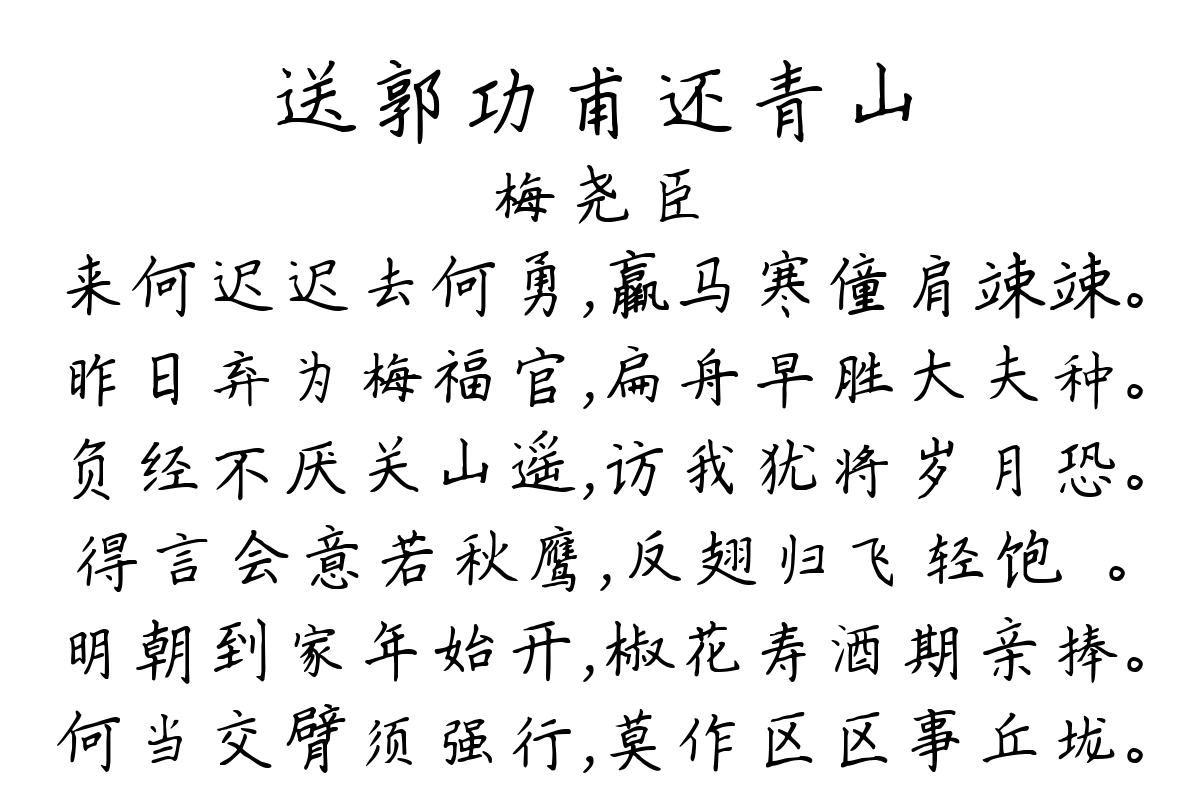 送郭功甫还青山
梅尧臣
来何迟迟去何勇,羸马寒僮肩竦竦。
昨日弃为梅福官,扁舟早胜大夫种。
负经不厌关山遥,访我犹将岁月恐。
得言会意若秋鹰,反翅归飞轻饱 。
明朝到家年始开,椒花寿酒期亲捧。
何当交臂须强行,莫作区区事丘垅。